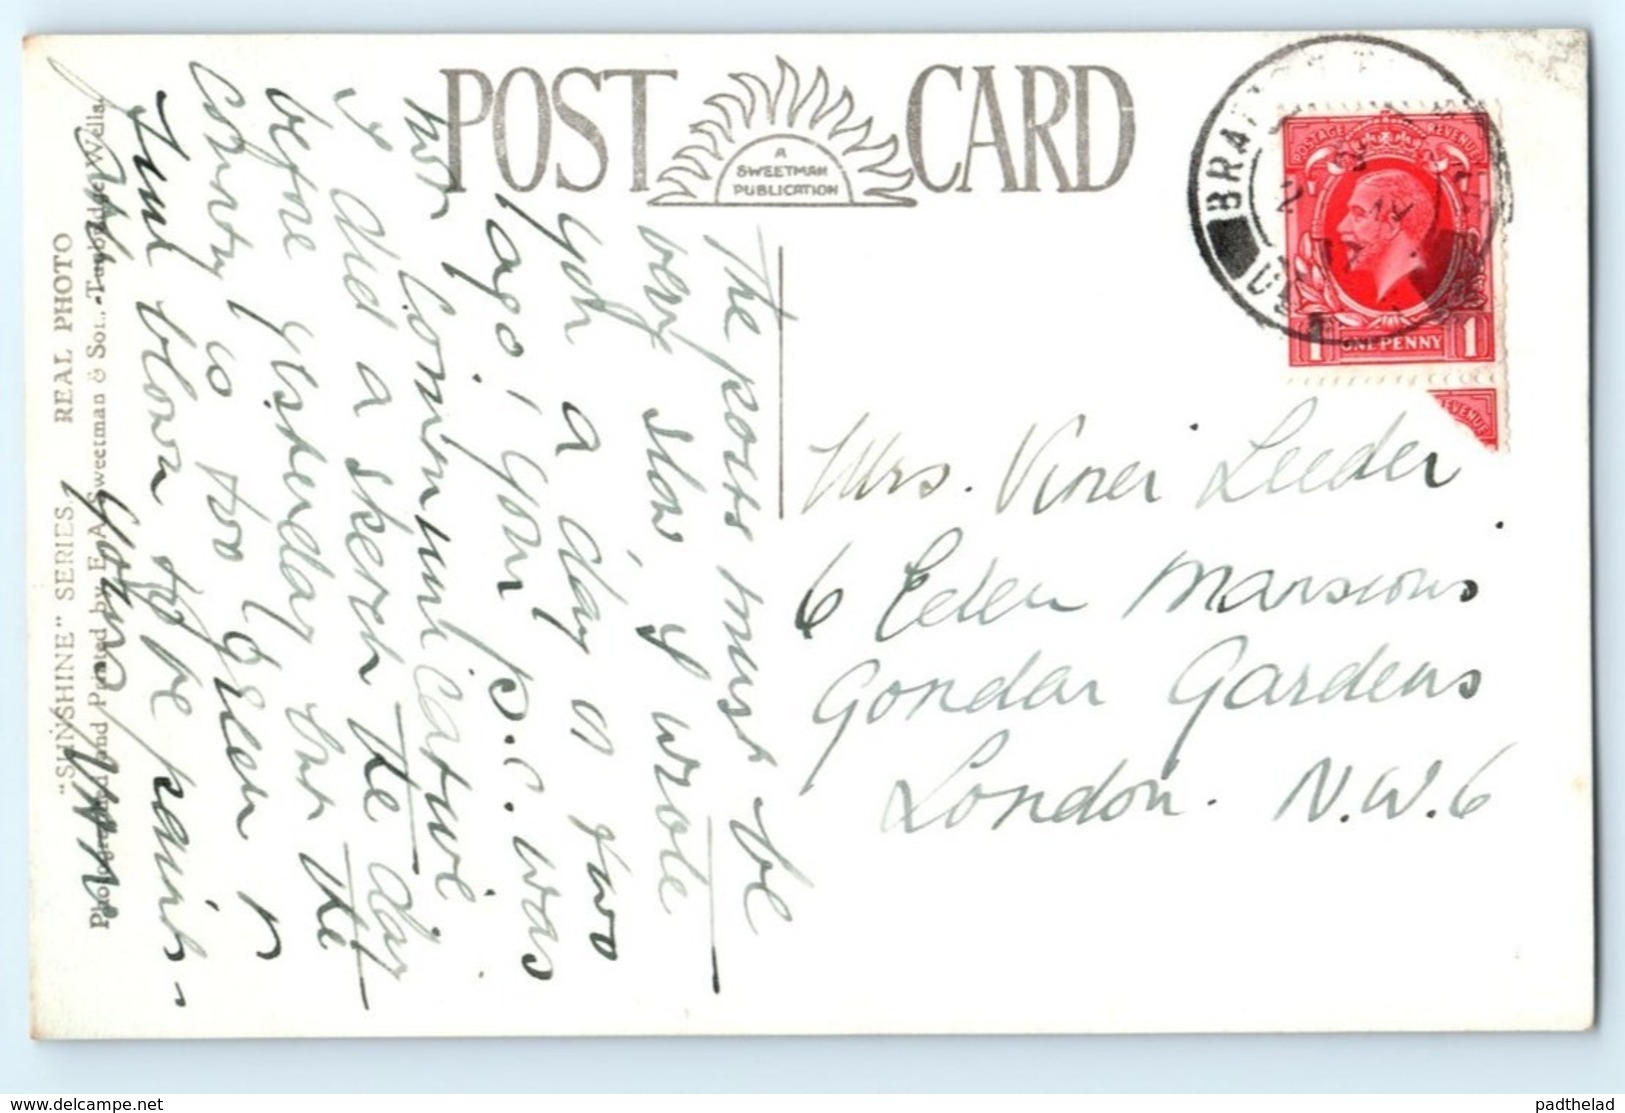 POST CARD
A
SWEETMAN
PUBLICATION
"SUNSHINE" SERIES. REAL PHOTO
Photographed and Printed by E. A. Sweetman & Son., Tunbridge Wells.
The posts must be
very slow, I wrote
you a day or two
ago, your p.c. was
not communicative
I did a sketch the day
before yesterday but the
country is too green &
time blown to be painta-
POSTAGE REVENUE
ONE PENNY
1 1
REVENUE
Mrs. Leeder
6 Eden Mansions
Gondar Gardens
London. N.W.6
www.delcampe.net
padthelad